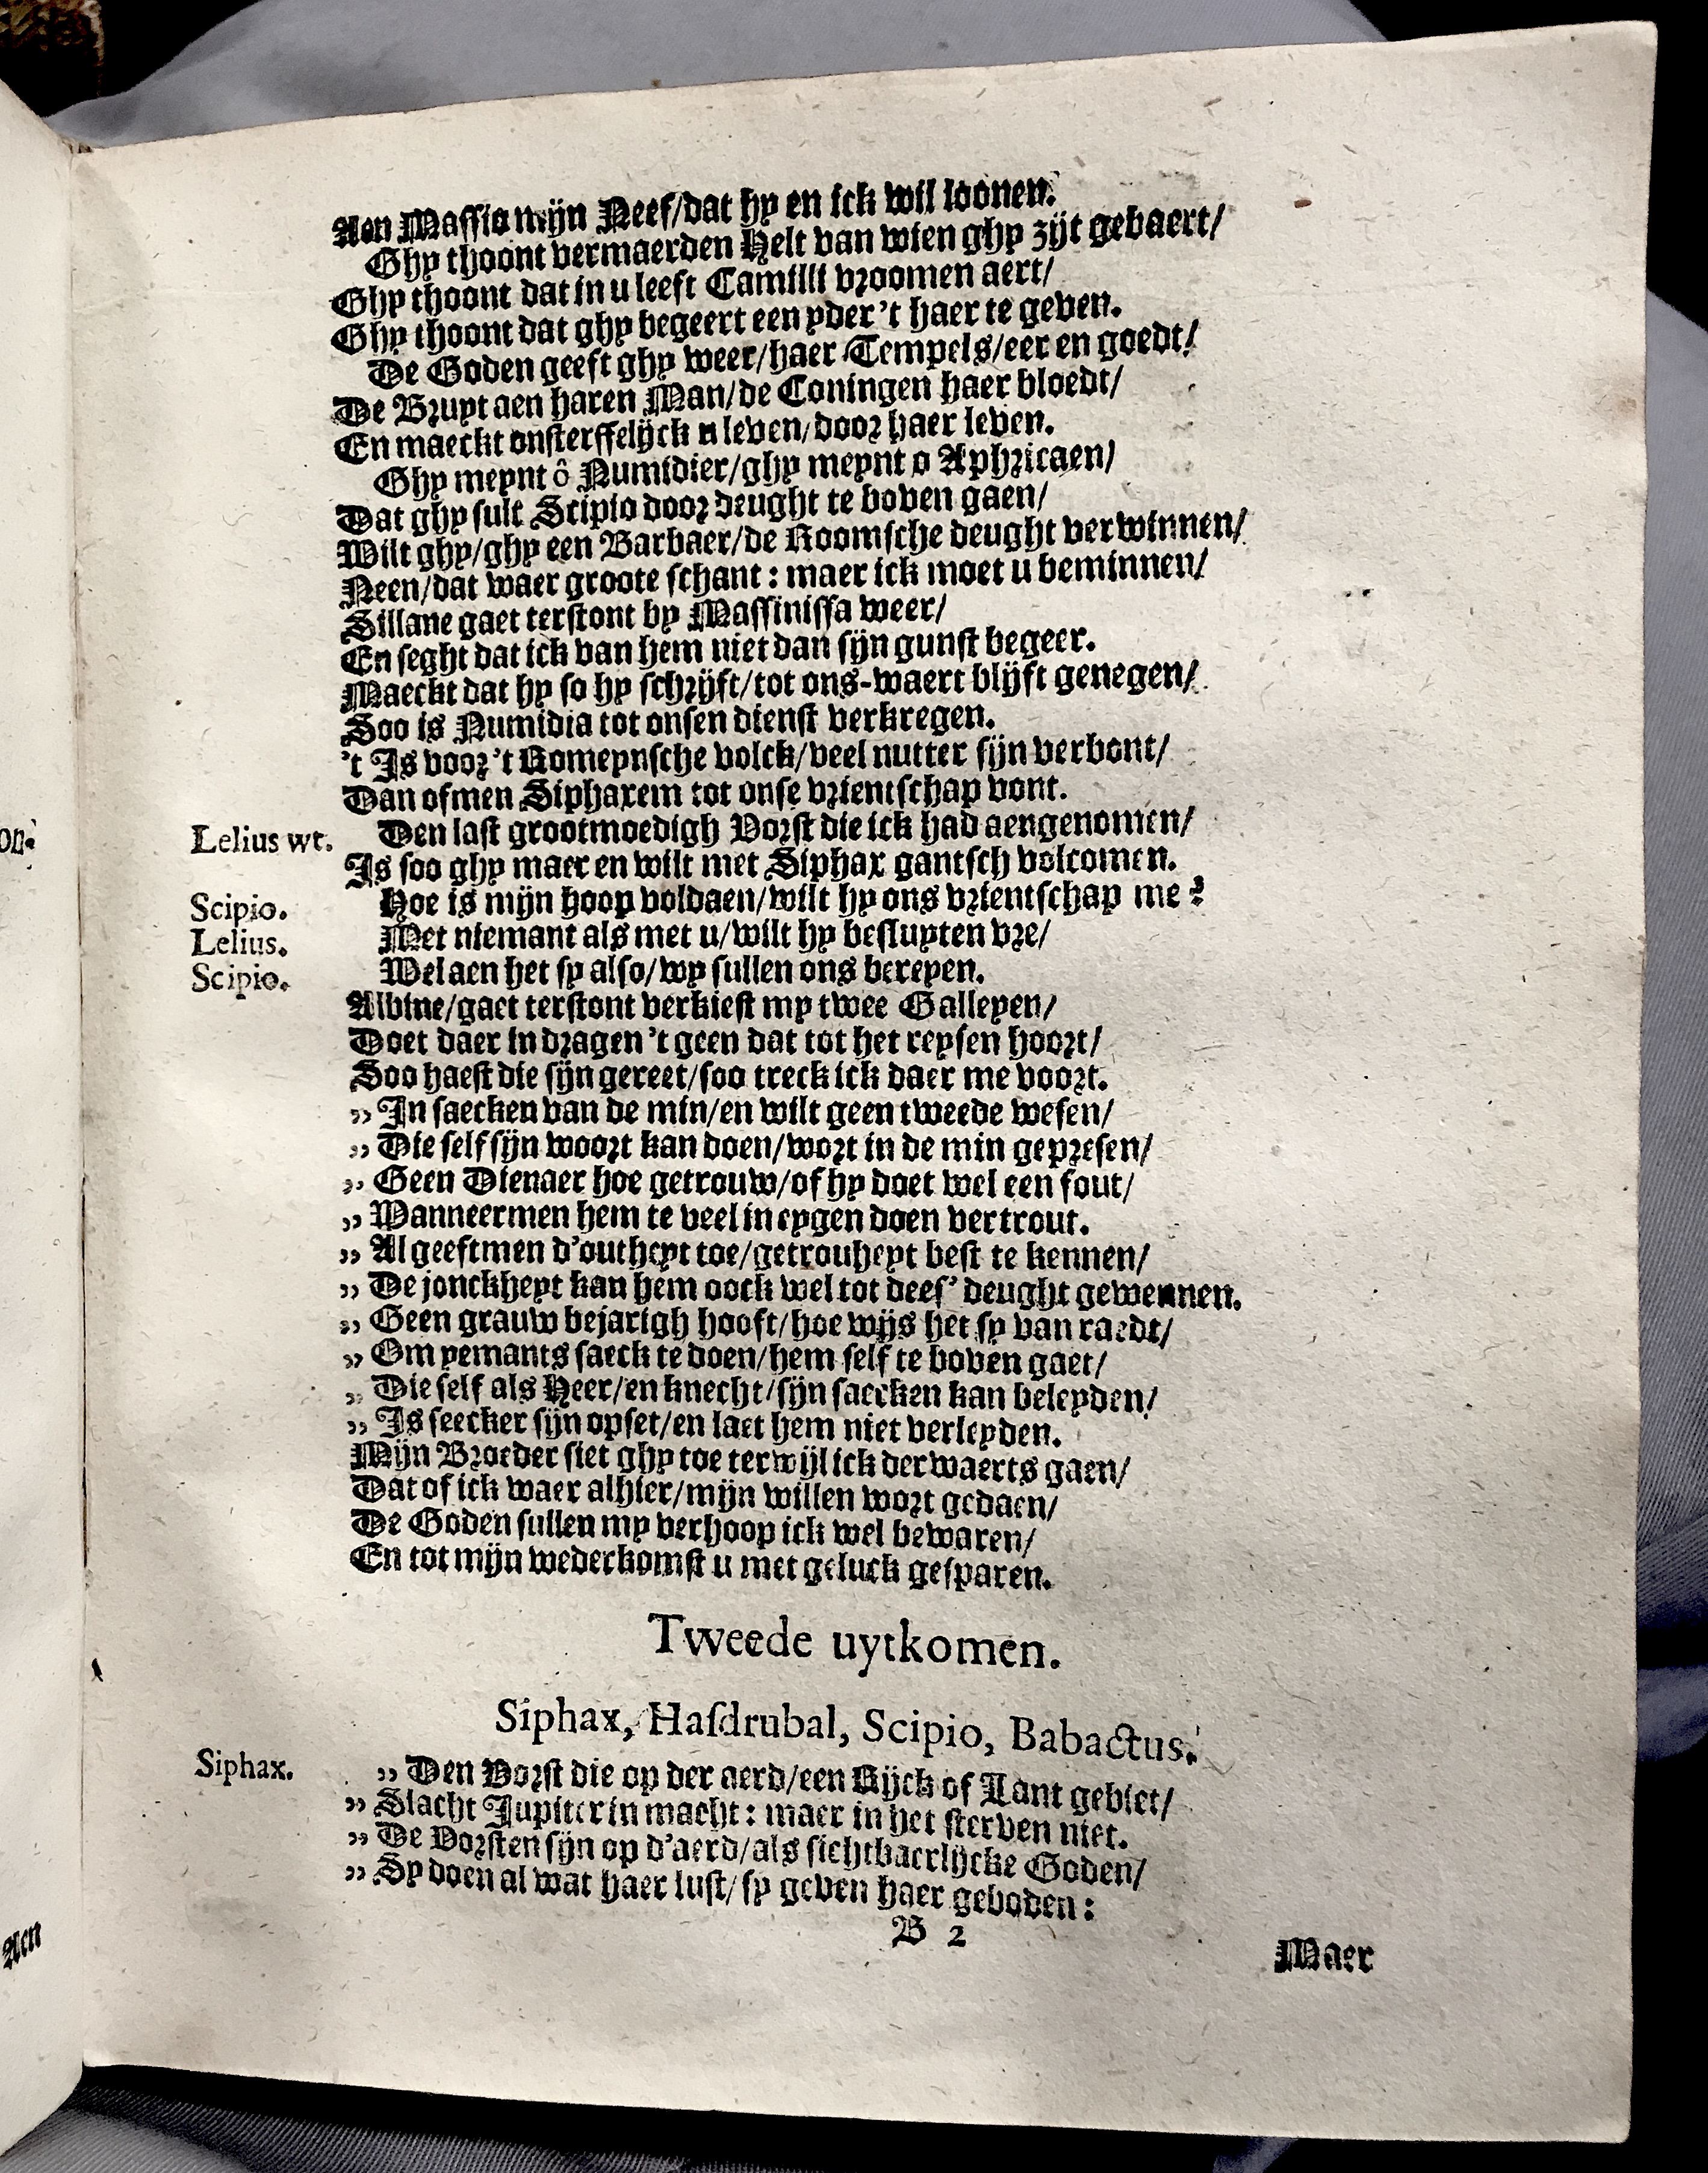 Aen Massia mijn Neef/dat hy en ick wil loonen.
Ghy thoont vermaerden Helt van wien ghy zijt gebaert/
Ghy thoont dat in u leeft Camilli vroomen aert/
Ghy thoont dat ghy begeert een yder 't haer te geven.
De Goden geeft ghy weer/haer Tempels/eer en goedt/
De Bruyt aen haren Man/de Coningen haer bloedt/
En maeckt onsterffelijck u leven/door haer leven.
Ghy meynt ô Numidier/ghy meynt o Aphricaen/
Dat ghy sult Scipio door deught te boven gaen/
Wilt ghy/ghy een Barbaer/de Roomsche deught verwinnen/
Neen/dat waer groote schant: maer ick moet u beminnen/
Sillane gaet terstont by Massinissa weer/
En seght dat ick van hem niet dan sijn gunst begeer.
Maeckt dat hy so hy schrijft/tot ons-waert blijft genegen/
Soo is Numidia tot onsen dienst verkregen.
't Is voor 't Romeynsche volck/veel nutter sijn verbont/
Dan ofmen Sipharem tot onse vrientschap vont.
Lelius wt. Den last grootmoedigh Vorst die ick had aengenomen/
Is soo ghy maer en wilt met Siphax gantsch volcomen.
Scipio. Hoe is mijn hoop voldaen/wilt hy ons vrientschap me?
Lelius. Met niemant als met u/wilt hy besluyten vre/
Scipio. Wel aen het sy also/wy sullen ons bereyen.
Albine/gaet terstont verkiest my twee Galleyen/
Doet daer in dragen 't geen dat tot het reysen hoort/
Soo haest die sijn gereet/soo treck ick daer me voort.
„ In saecken van de min/en wilt geen tweede wesen/
„ Die self sijn woort kan doen/wort in de min gepresen/
„ Geen Dienaer hoe getrouw/of hy doet wel een fout/
„ Wanneermen hem te veel in eygen doen vertrout.
„ Al geeftmen d'outheyt toe/getrouheyt best te kennen/
„ De jonckheyt kan hem oock wel tot dees' deught gewennen.
„ Geen grauw bejarigh hooft/hoe wijs het sy van raedt/
„ Om yemants saeck te doen/hem self te boven gaet/
„ Die self als Heer/en knecht/sijn saecken kan beleyden/
„ Is seecker sijn opset/en laet hem niet verleyden.
Mijn Broeder siet ghy toe terwijl ick derwaerts gaen/
Dat of ick waer alhier/mijn willen wort gedaen/
De Goden sullen my verhoop ick wel bewaren/
En tot mijn wederkomst u met geluck gesparen.
Tweede uytkomen.
Siphax, Hasdrubal, Scipio, Babactus.
Siphax. „ Den Vorst die op der aerd/een Rijck of Lant gebiet/
„ Slacht Jupiter in macht: maer in het sterven niet.
„ De Vorsten sijn op d'aerd/als sichtbaerlijcke Goden/
„ Sy doen al wat haer lust/sy geven haer geboden:
B 2
Maer
Aen